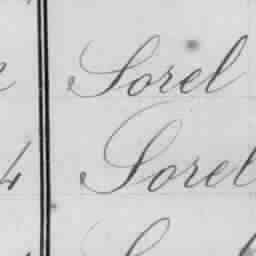 Sorel
4 Sorel